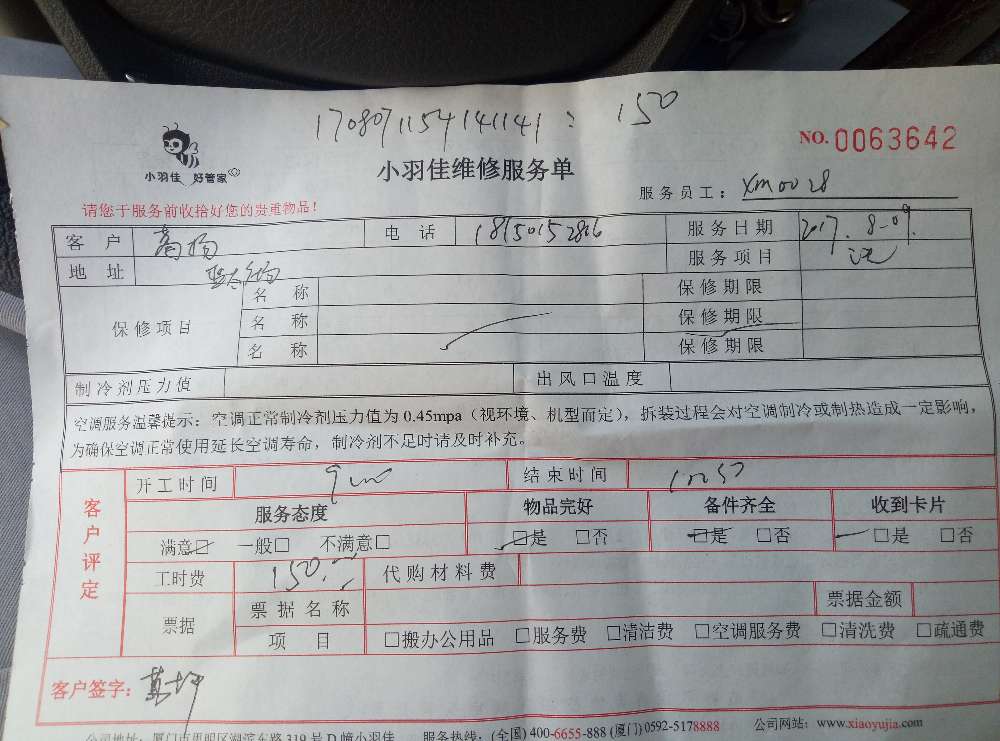 1708071154141141: 150
NO. 0063642
小羽佳 好管家
小羽佳维修服务单
服务员工: XM0028
请您于服务前收拾好您的贵重物品!
客 户 电 话 18150152816 服务日期 2017.8-09.
地 址 服务项目
保修项目 名 称 保修期限
名 称 保修期限
名 称 保修期限
制冷剂压力值 出风口温度
空调服务温馨提示:空调正常制冷剂压力值为 0.45mpa(视环境、机型而定),拆装过程会对空调制冷或制热造成一定影响,
为确保空调正常使用延长空调寿命,制冷剂不足时请及时补充。
客户评定 开工时间 结束时间
服务态度 物品完好 备件齐全 收到卡片
满意□ 一般□ 不满意□ □是 □否 □是 □否 □是 □否
工时费 150 代购材料费
票据 票据名称 票据金额
项 目 □搬办公用品 □服务费 □清洁费 □空调服务费 □清洗费 □疏通费
客户签字:
公司地址:厦门市思明区湖滨东路 319 号 D 幢小羽佳 服务热线:(全国) 400-6655-888 (厦门) 0592-5178888 公司网站:www.xiaoyujia.com